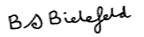 BS Bielefeld